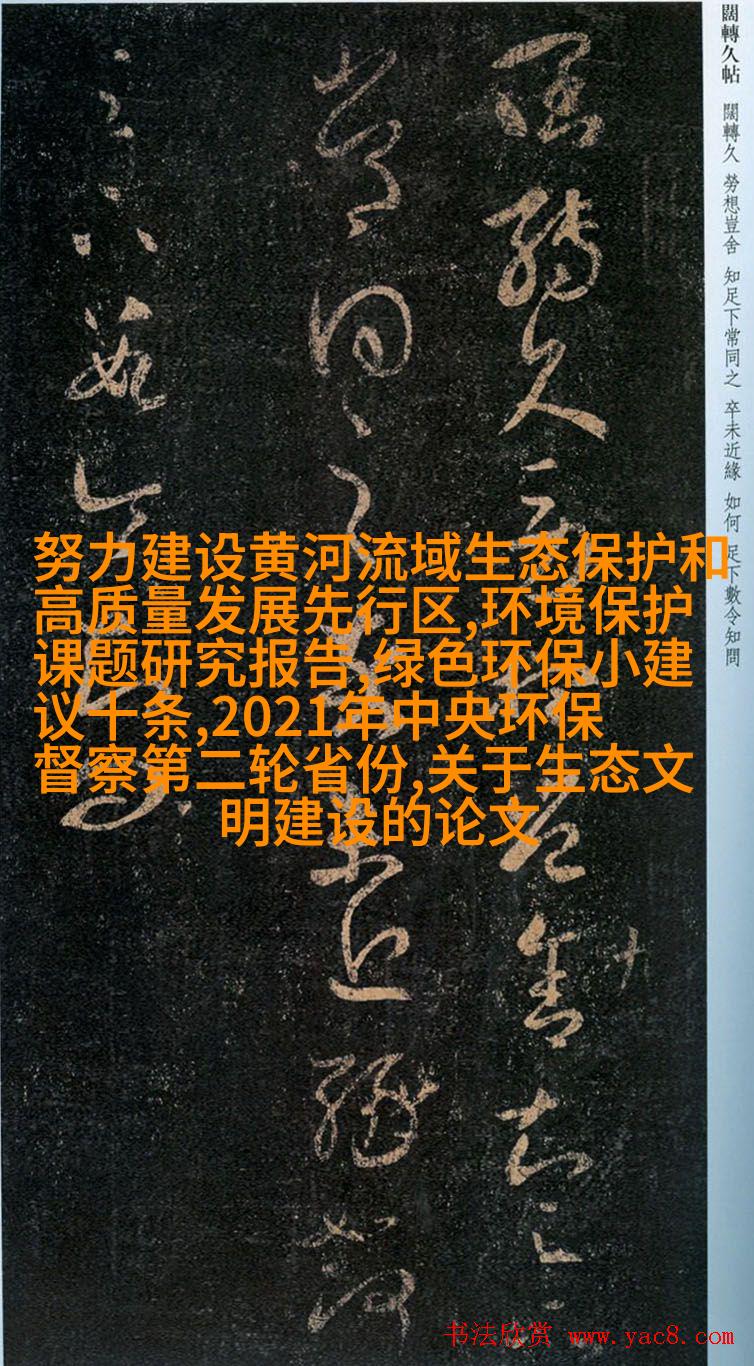 闊轉久帖 闊轉久 勞想豈舍 知足下常同之 卒未近緣 如何 足下數令知問
闊轉久勞想豈舍知足下
常同之卒未近緣如何
足下數令知問
努力建设黄河流域生态保护和
高质量发展先行区,环境保护
课题研究报告,绿色环保小建
议十条,2021年中央环保
督察第二轮省份,关于生态文
明建设的论文
书法欣赏 www.yac8.com